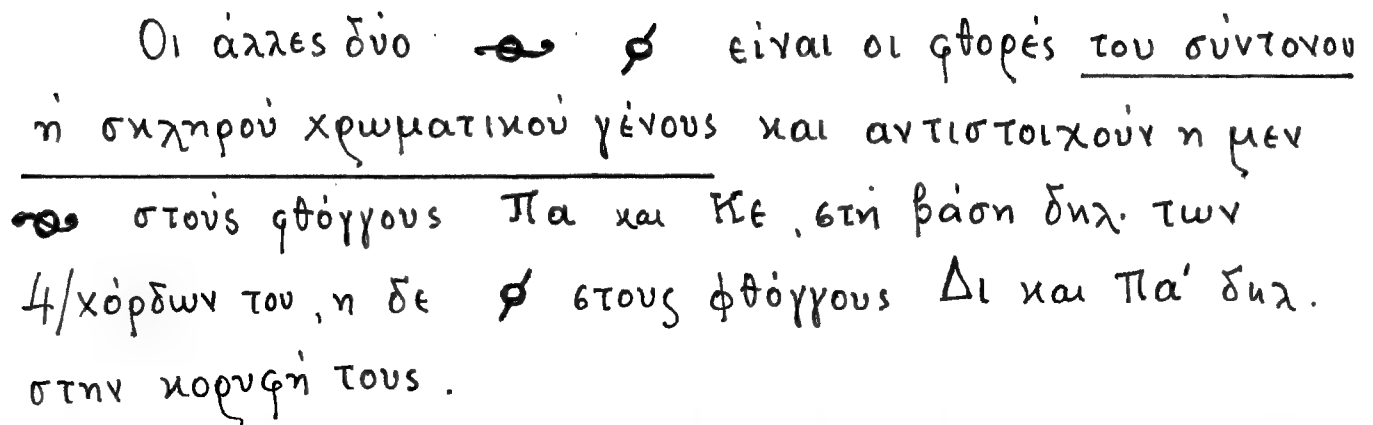 Οι άλλες δύο είναι οι φθορές του σύντονου
ή σκληρού χρωματικού γένους και αντιστοιχούν η μεν
στούς φθόγγους Πα και Κε, στή βάση δηλ. των
4/χόρδων του, η δε στους φθόγγους Δι και Πα' δηλ.
στην κορυφή τους.